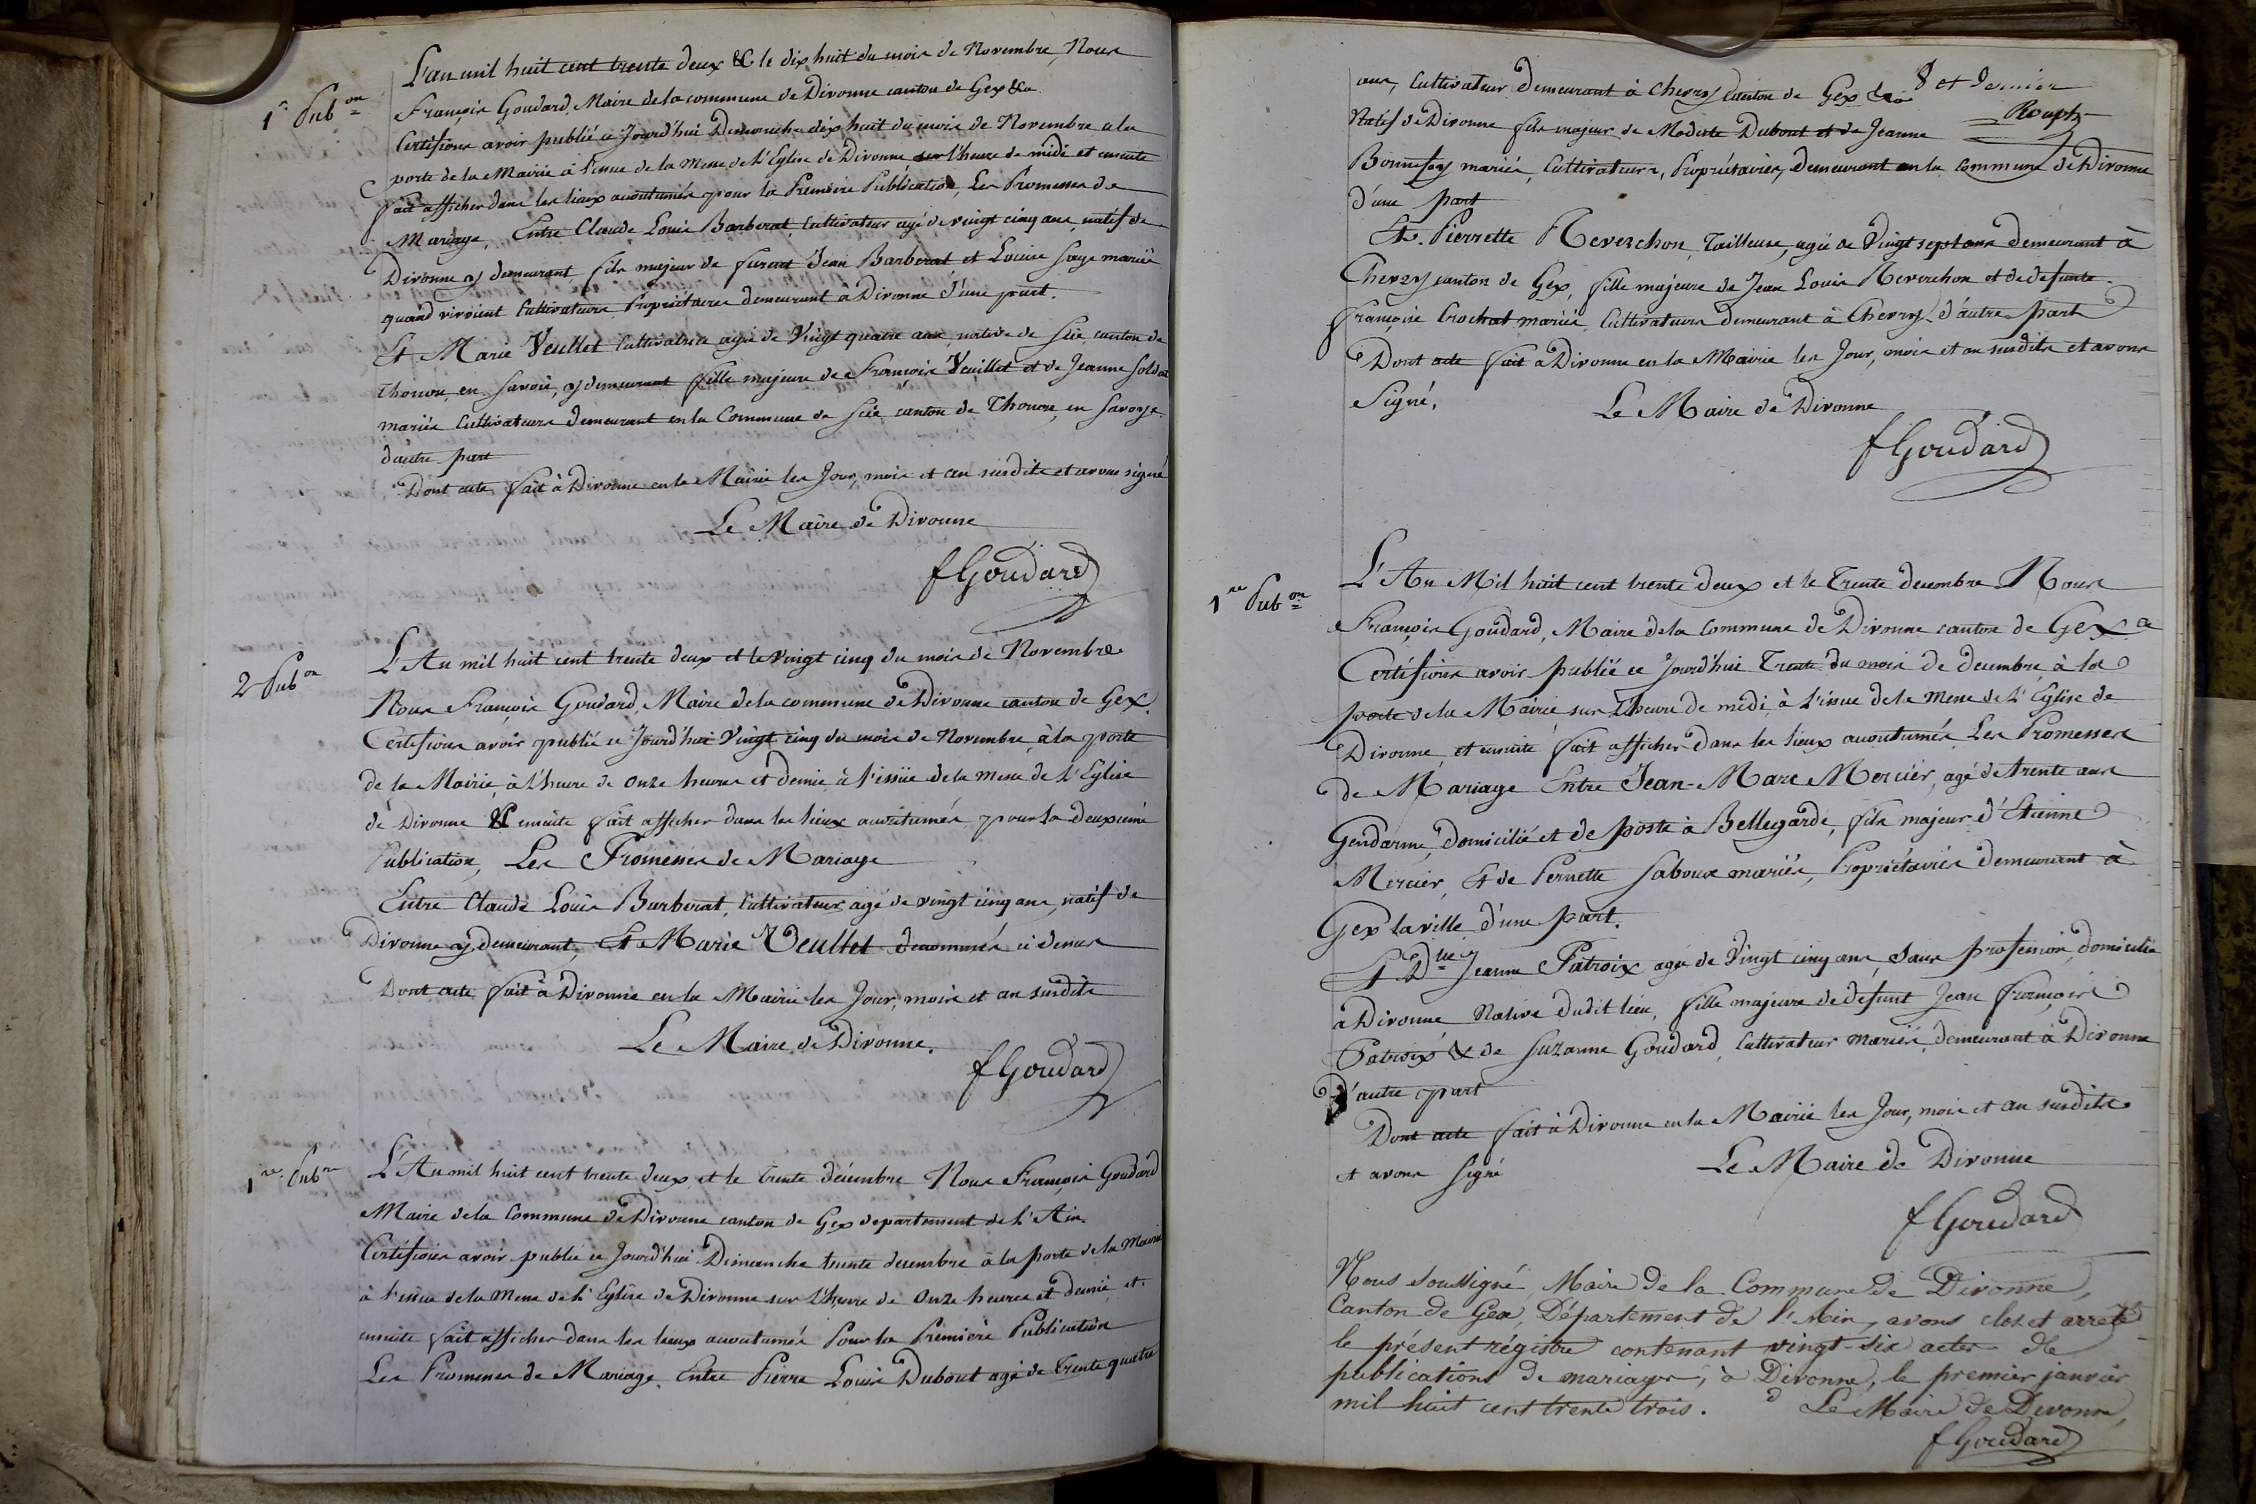 1re Pubon
L'an mil huit cent trente deux & le dix huit du mois de Novembre, Nous
François Goudard, Maire de la commune de Divonne canton de Gex &a
Certifions avoir publié ce Jourd'hui Dimanche dix huit du mois de Novembre a la
porte de la Mairie à l'issue de la Messe de l'Eglise de Divonne sur l'heure de midi et ensuite
fait afficher dans les lieux accoutumés pour la Première Publication, Les Promesses de
Mariage, Entre Claude Louis Barberat, Cultivateur agé de vingt cinq ans, natif de
Divonne y demeurant fils majeur de furent Jean Barberat et Louise Sage mariés
quand vivoient Cultivateurs Propriétaires demeurant à Divonne d'une part.
Et Marie Veullet Cultivatrice agée de Vingt quatre ans, native de Sciè, canton de
Thonon, en Savoie, y demeurant fille majeure de François Veuillet et de Jeanne Soldat
mariés Cultivateurs demeurant en la Commune de Sciè, canton de Thonon, en Savoye.
d'autre part
Dont acte fait à Divonne en la Mairie les Jour, mois et an susdits et avons signé
Le Maire de Divonne
f Goudard
2 Pubon
L'An mil huit cent trente deux et le Vingt cinq du mois de Novembre
Nous François Goudard, Maire de la commune de Divonne canton de Gex.
Certifions avoir publié ce Jourd'hui Vingt cinq du mois de Novembre, à la porte
de la Mairie, à l'heure de onze heures et demie à l'issüe de la messe de l'Eglise
de Divonne & ensuite fait afficher dans les lieux accoutumés pour la deuxieme
Publication, Les Promesses de Mariage
Entre Claude Louis Barberat, Cultivateur agé de vingt cinq ans, natif de
Divonne y demeurant, Et Marie Veullet denommés ci dessus
Dont acte fait à Divonne en la Mairie les Jour, mois et an susdits
Le Maire de Divonne.
f Goudard
1re Pubon
L'An mil huit cent trente deux et le trente décembre Nous François Goudard
Maire de la Commune de Divonne canton de Gex departement de l'Ain.
Certifions avoir publié ce Jourd'hui Dimanche trente decembre à la porte de la Mairie
à l'issüe de la Messe de l'Eglise de Divonne sur l'heure de Onze heures et demie et
ensuite fait afficher dans les lieux accoutumés Pour la Première Publication
Les Promesses de Mariage. Entre Pierre Louis Dubout agé de Trente quatre
ans, Cultivateur demeurant à Chevry canton de Gex &a 8 et Dernier
Natif de Divonne fils majeur de Modeste Dubout et de Jeanne
Bonnefoy mariés, Cultivateurs, Propriétaires, demeurant en la commune de Divonne
d'une part
Et. Pierrette Reverchon, Tailleuse, agée de Vingt sept ans demeurant à
Chevry canton de Gex, fille majeure de Jean Louis Reverchon et de defunte
françoise Crochat mariés, Cultivateurs demeurant à Chevry d'autre part
Dont acte fait à Divonne en la Mairie les Jour, mois et an susdits et avons
Signé.
Le Maire de Divonne
f Goudard
1re Pubon
L'An Mil huit cent trente deux et le Trente decembre Nous
François Goudard, Maire de la Commune de Divonne canton de Gex a
Certifions avoir publié ce Jourd'hui Trente du mois de decembre, à la
porte de la Mairie sur l'heure de midi, à l'issue de la Messe de l'Eglise de
Divonne, et ensuite fait afficher dans les lieux accoutumés Les Promesses
de Mariage Entre Jean-Marc Mercier, agé de trente ans
Gendarme, domicilié et de poste à Bellegarde, fils majeur d'Etienne
Mercier, Et de Pernette Saboux mariés, Propriétaires demeurant à
Gex la ville d'une part.
Et Dlle Jeanne Patroix agée de Vingt cinq ans, Sans profession, domiciliée
à Divonne Native dudit lieu, fille majeure de defunt Jean François
Patroix & de Suzanne Goudard, Cultivateur mariés, demeurant à Divonne
D'autre part
Dont acte fait à Divonne en la Mairie les Jour, mois et an susdits
et avons Signé
Le Maire de Divonne
f Goudard
Nous Soussigné Maire de la Commune de Divonne,
Canton de Gex, Département de l'Ain, avons clos et arrêté
le présent régistre contenant vingt-six actes de
publications de mariages, à Divonne, le premier janvier
mil huit cent trente trois. Le Maire de Divonne,
f Goudard